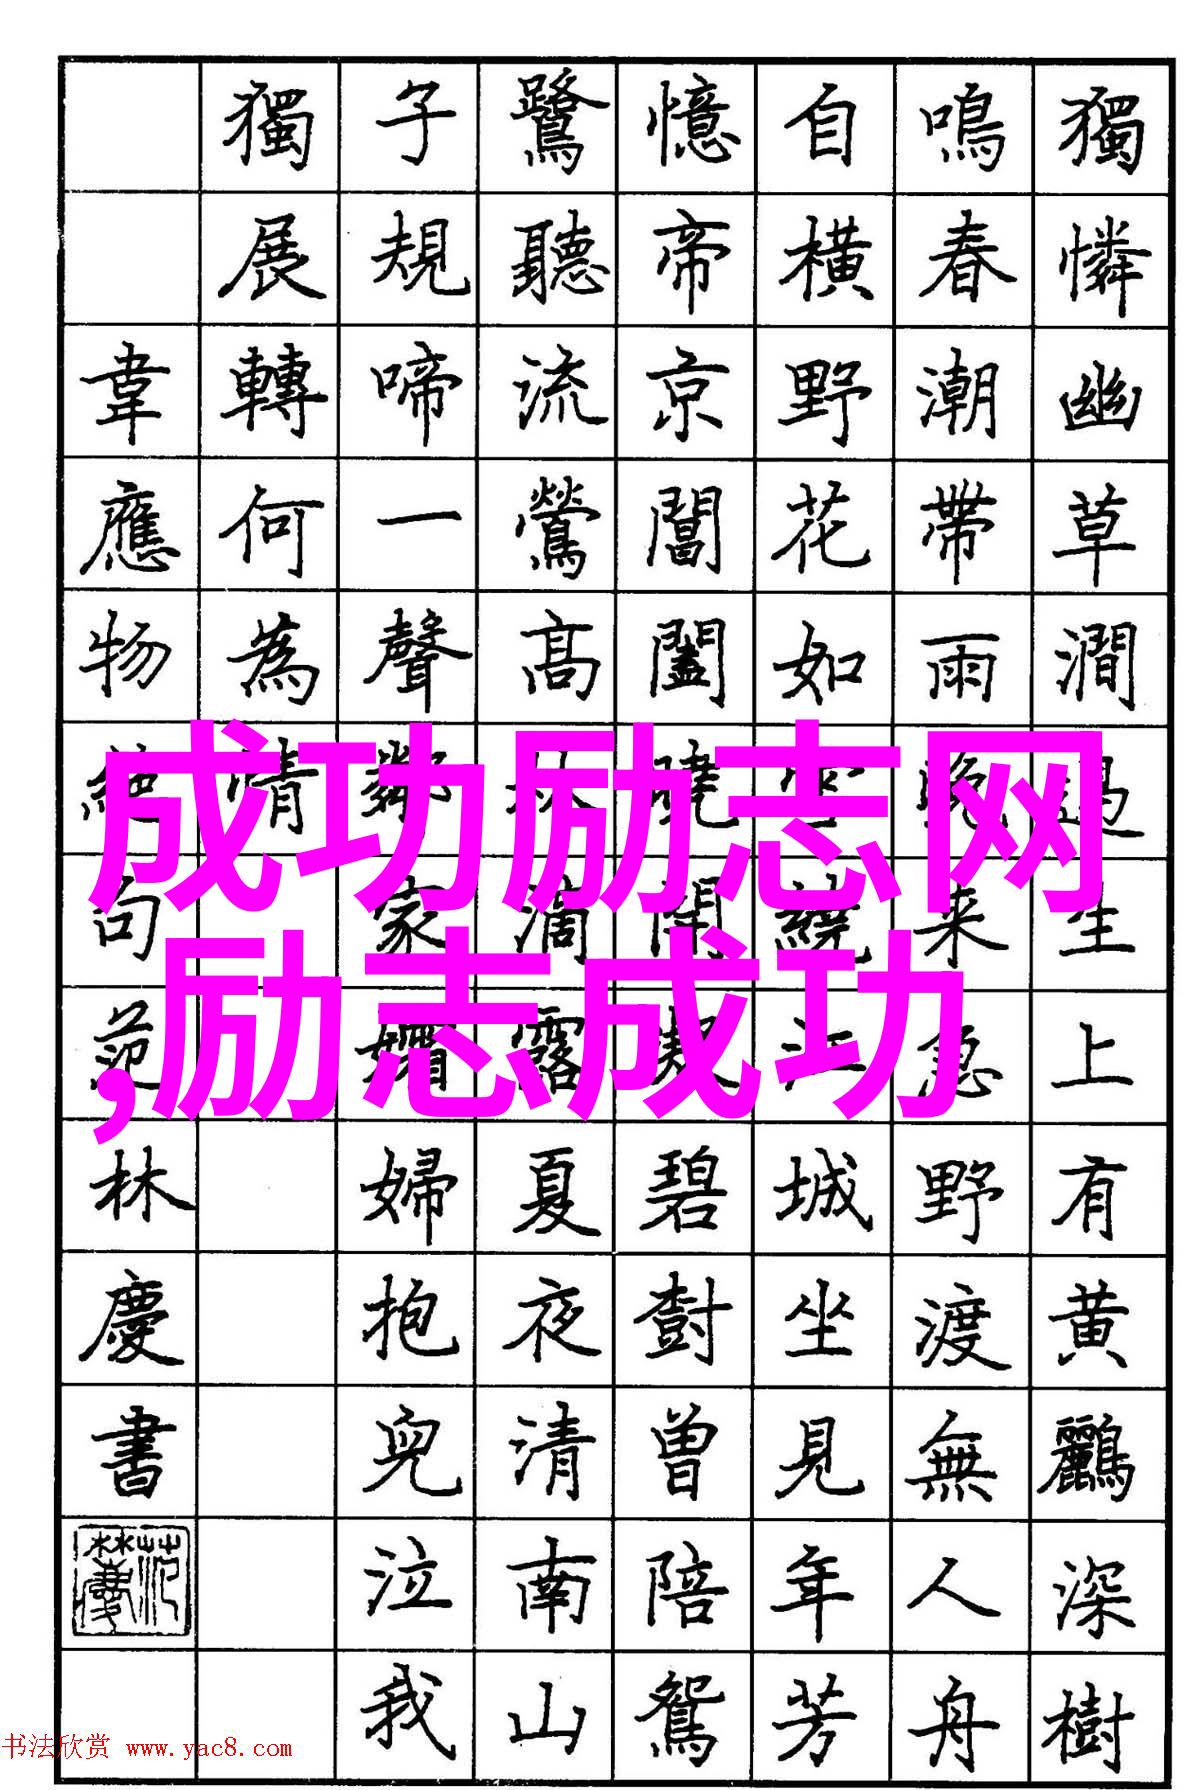 獨憐幽草澗生上有黄鸝深樹
鳴春潮帶雨晚来急野渡無人舟
自橫野花如雪繞江城坐見年芳
憶帝京閶闔曉開凝碧樹曾陪鴛
鷺聽流鶯高林滴露夏夜清南山
子規啼一聲鄰家孀婦抱兒泣我
獨展轉何為情
韋應物絕句范林慶書
成功励志网
,励志成功
书法欣赏 www.yac8.com